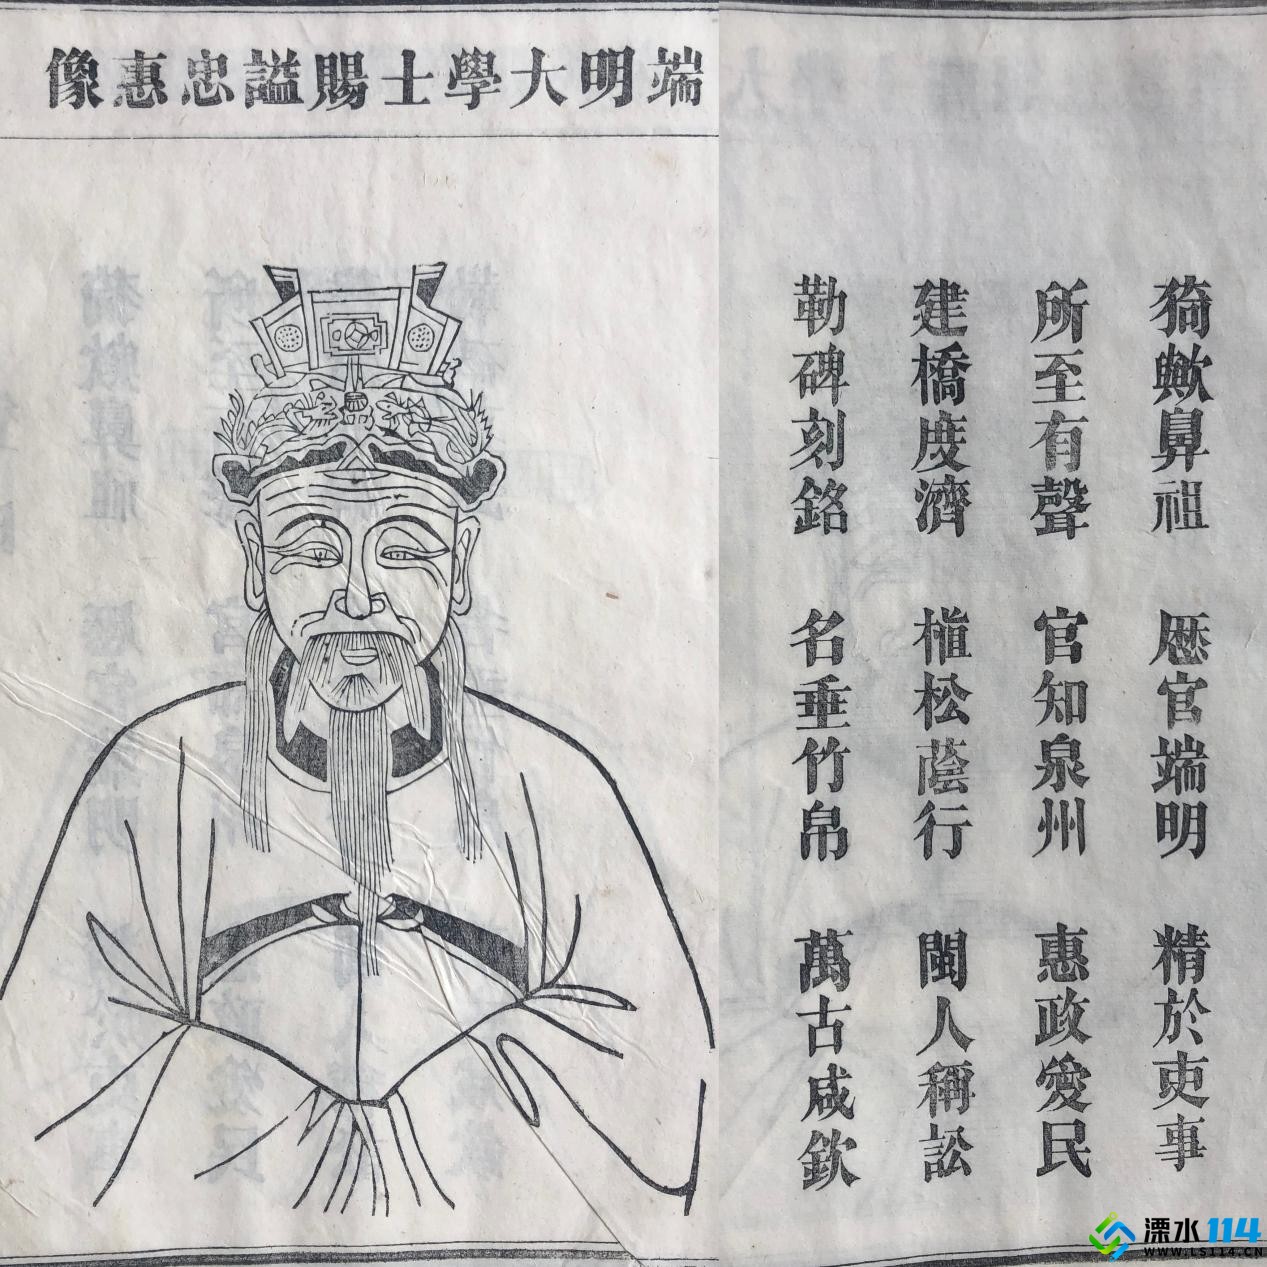 端明大學士賜謚忠惠像
猗歟鼻祖 歴官端明 精於吏事
所至有聲 官知泉州 惠政愛民
建橋度濟 植松蔭行 閩人稱訟
勒碑刻銘 名垂竹帛 萬古咸欽
溧水114
WWW.LS114.CN